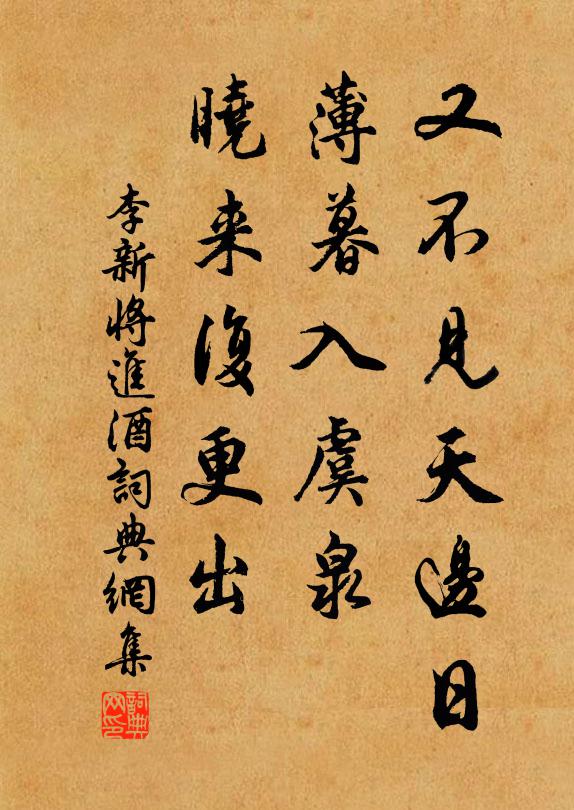 又不見天邊日
薄暮入虞泉
曉来復更出
李新將進酒詞典網集
詞典网印